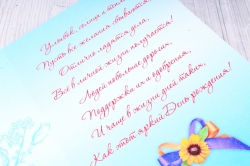 Улыбок, солнца и тепла,
Пусть все желания сбываются,
Отлично ладятся дела,
Всё в личной жизни получается!
Людей побольше дорогих,
Поддержки их и одобрения,
И чаще в жизни дней таких,
Как этот яркий День рождения!